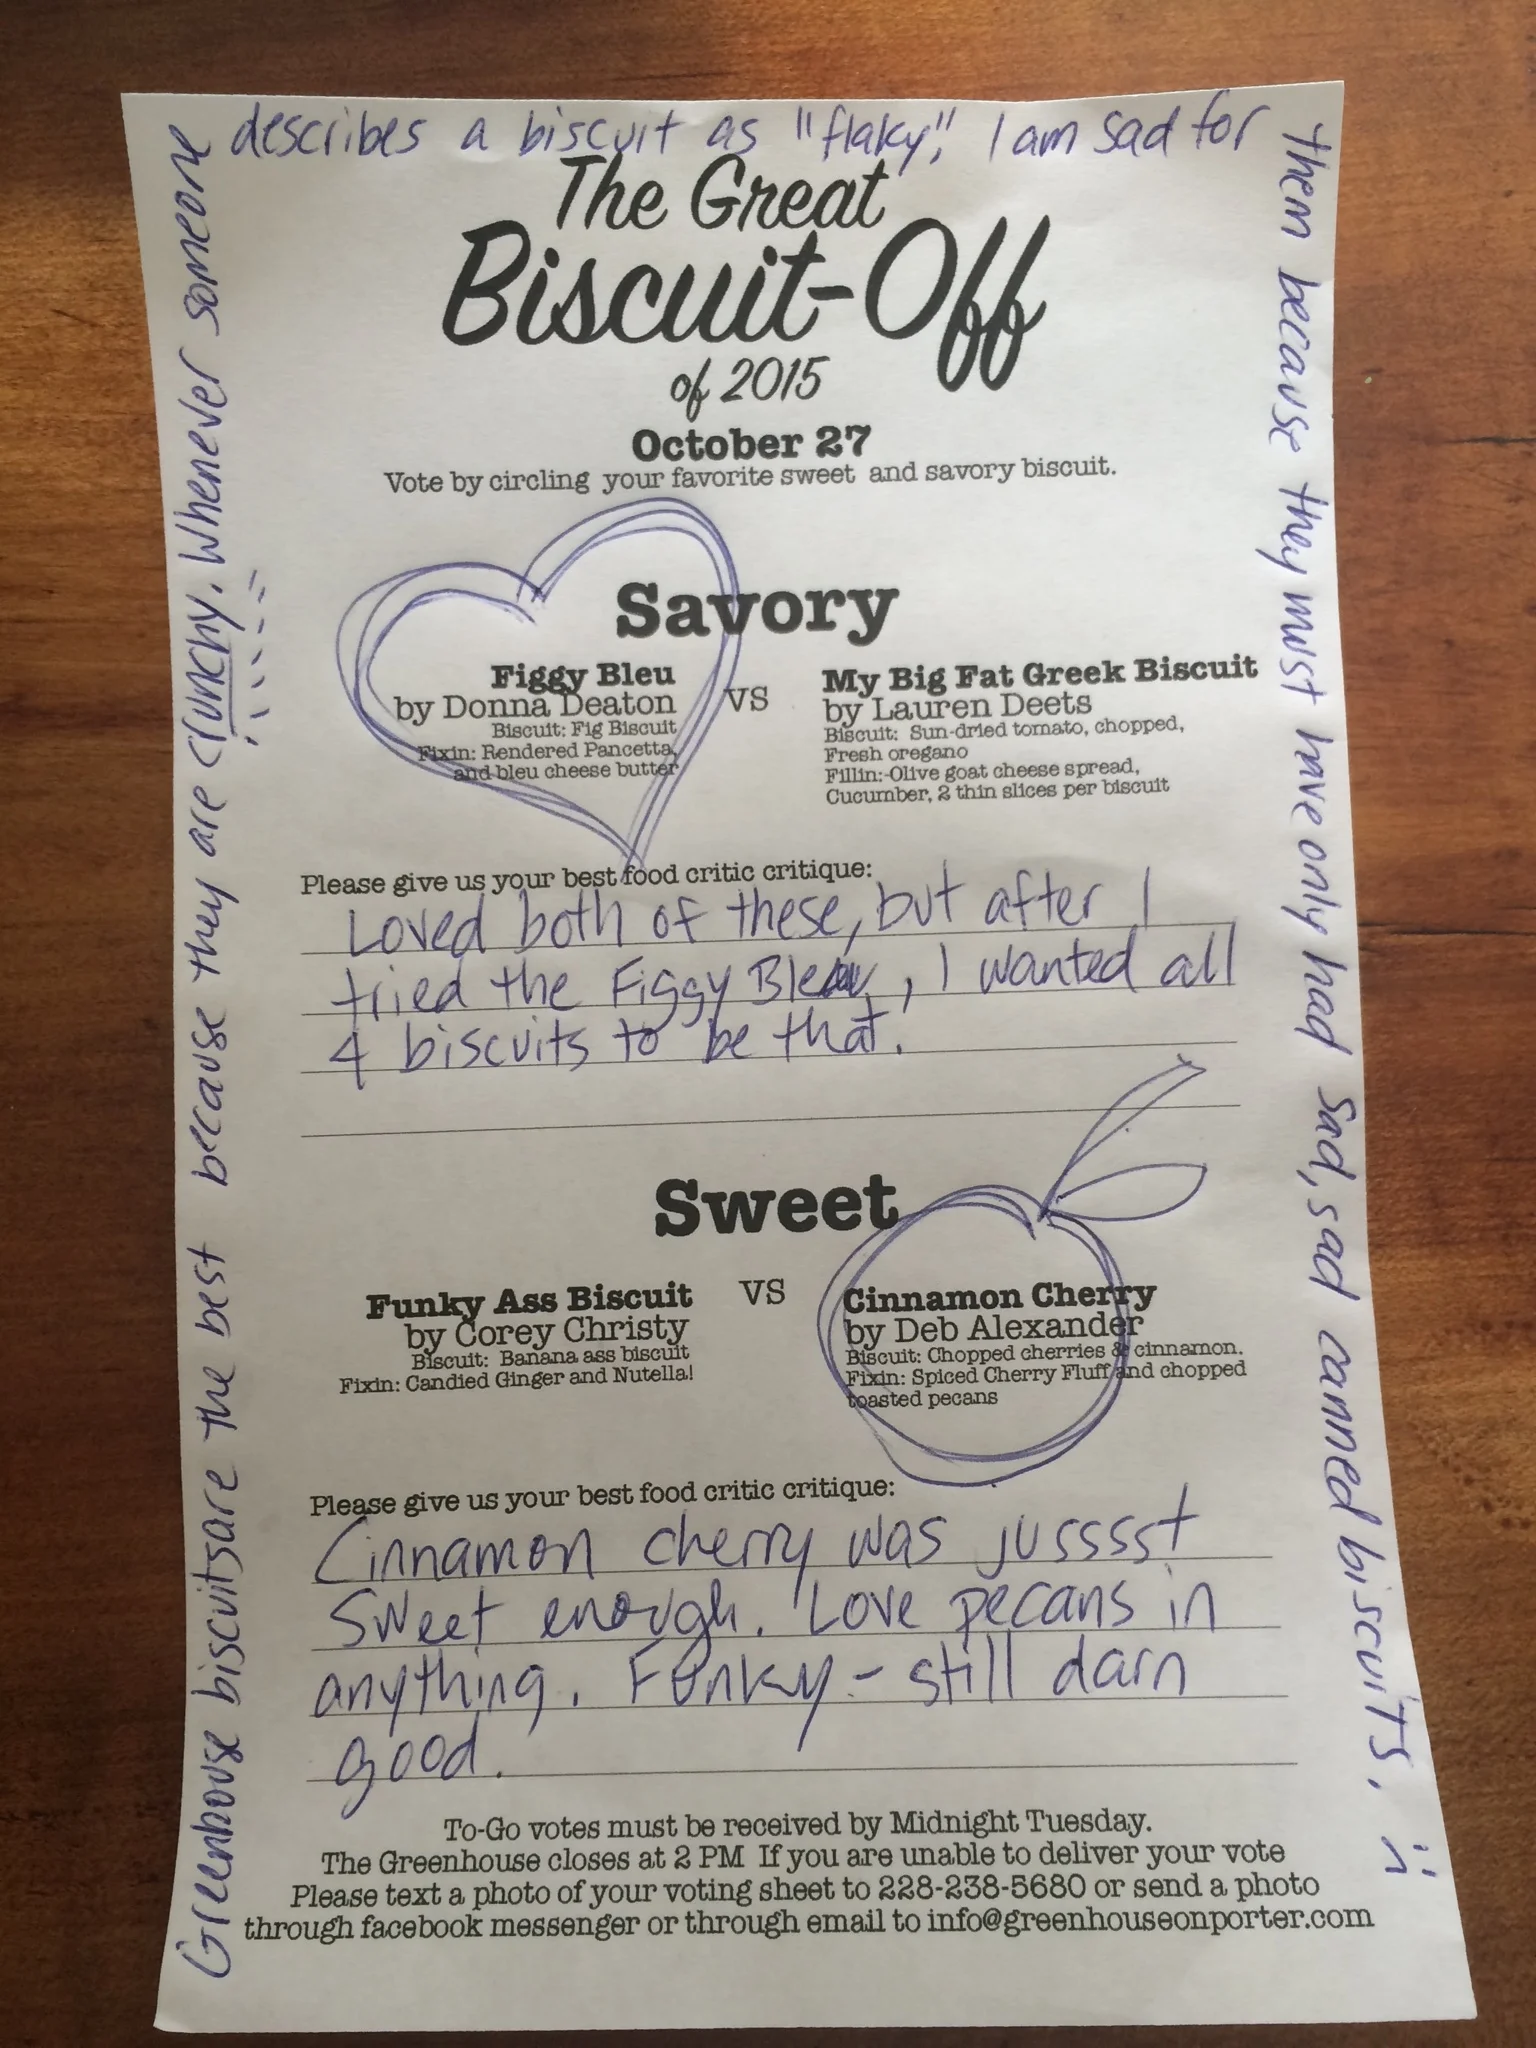 Greenhouse biscuitsare the best because they are crunchy. Whenever someone
describes a biscuit as "flaky", I am sad for
them because they must have only had sad, sad canned biscuits. :(
The Great
Biscuit-Off
of 2015
October 27
Vote by circling your favorite sweet and savory biscuit.
Savory
Figgy Bleu
by Donna Deaton
Biscuit: Fig Biscuit
Fixin: Rendered Pancetta,
and bleu cheese butter
VS
My Big Fat Greek Biscuit
by Lauren Deets
Biscuit: Sun-dried tomato, chopped,
Fresh oregano
Fillin:-Olive goat cheese spread,
Cucumber, 2 thin slices per biscuit
Please give us your best food critic critique:
Loved both of these, but after I
tried the Figgy Bleu, I wanted all
4 biscuits to be that.
Sweet
Funky Ass Biscuit
by Corey Christy
Biscuit: Banana ass biscuit
Fixin: Candied Ginger and Nutella!
VS
Cinnamon Cherry
by Deb Alexander
Biscuit: Chopped cherries & cinnamon.
Fixin: Spiced Cherry Fluff and chopped
toasted pecans
Please give us your best food critic critique:
Cinnamon cherry was jusssst
sweet enough. Love pecans in
anything. Funky - still darn
good.
To-Go votes must be received by Midnight Tuesday.
The Greenhouse closes at 2 PM If you are unable to deliver your vote
Please text a photo of your voting sheet to 228-238-5680 or send a photo
through facebook messenger or through email to info@greenhouseonporter.com